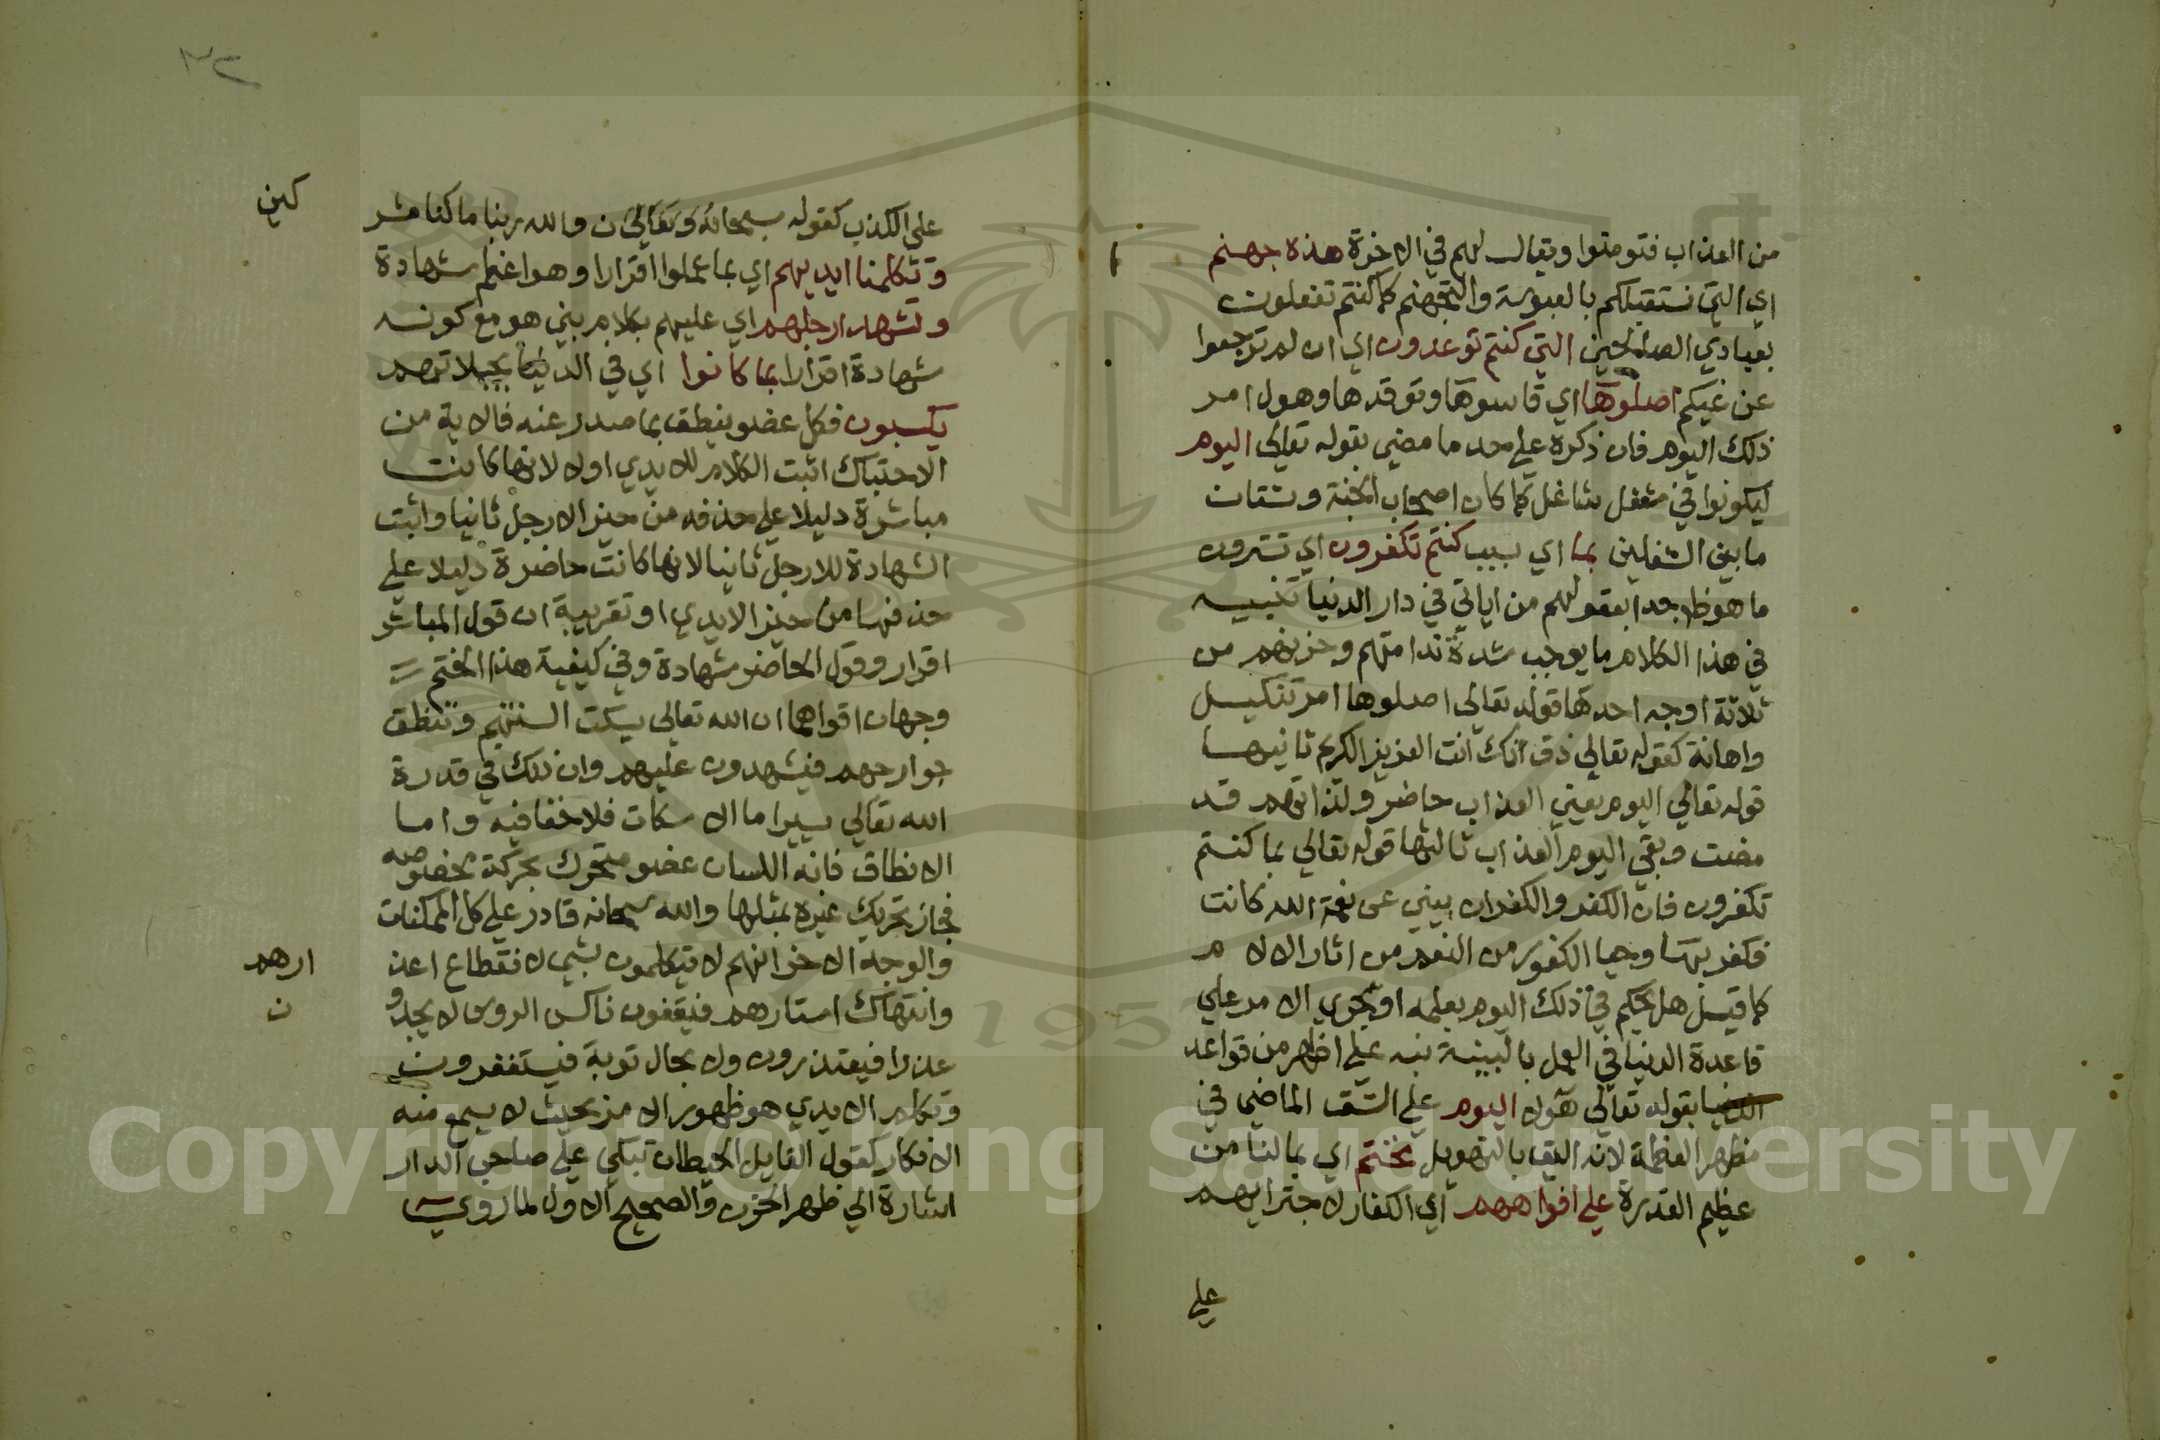 من العذاب فتومنوا ويقال لهم في الاخرة هذه جهنم
اي التي تستقبلكم بالعبوسة والتجهم كما كنتم تفعلون
بعبادي الصالحين التي كنتم توعدون اي ان لم ترجعوا
عن غيكم اصلوها اي قاسوها وتوقدها وهول امر
ذلك اليوم فان ذكره على حد ما مضي بقوله تعالى اليوم
ليكونوا في شغل شاغل كما كان اصحاب الجنة وشتان
ما بين الشغلين بما اي بسبب كنتم تكفرون اي تسترون
ما هو ظاهر جدا بعقولهم من اياتي في دار الدنيا تنبيه
في هذا الكلام ما يوجب شدة ندامتهم وحزنهم من
ثلاثة اوجه احدها قوله تعالى اصلوها امر تنكيل
واهانة كقوله تعالى ذق انك انت العزيز الكريم ثانيها
قوله تعالى اليوم يعني العذاب حاضر ولذاتهم قد
مضت وبقي اليوم العذاب ثالثها قوله تعالى بما كنتم
تكفرون فان الكفر والكفران يبني عن نعمة الله كانت
فكفر بها وحيا الكفور من النعم من اثار الالا م
كما قيل هل يحكم في ذلك اليوم بعلمه او يجري الامر على
قاعدة الدنيا في العمل بالبينة نبه على اظهر من قواعد
الدنيا بقوله تعالى هوله اليوم على النسق الماضي في
مظهر العظمة لانه اليق بالتهويل نختم اي بما لنا من
عظيم القدرة على افواههم اي الكفار لاجترايهم
على
٣٢
على الكذب كقوله سبحانه وتعالى ن والله ربنا ما كنا مشر
كين
وتكلمنا ايديهم اي بما عملوا اقرارا وهو اعظم شهادة
وتشهد ارجلهم اي عليهم بكلام بين هو مع كونه
شهادة اقرارا بما كانوا اي في الدنيا بجبلاتهم
يكسبون فكل عضو ينطق بما صدر عنه فالاية من
الاحتباك اثبت الكلام للايدي اولا لانها كانت
مباشرة دليلا على حذفه من حيز الارجل ثانيا واثبت
الشهادة للارجل ثانيا لانها كانت حاضرة دليلا على
حذفها من حيز الايدي او تقريبة ان قول المباشر
اقرار وقول الحاضر شهادة وفي كيفية هذا الختم
وجهان اقواهما ان الله تعالى يسكت السنتهم وتنطق
جوارحهم فيشهدون عليهم وان ذلك في قدرة
الله تعالى يسيرا ما الاسكات فلا خفا فيه واما
الانطاق فانه اللسان عضو متحرك بحركة مخصوصه
فجاز تحريك غيره بمثلها والله سبحانه قادر على كل الممكنات
والوجه الاخر انهم لا يتكلمون بشي لانقطاع اعذ
ارهم
وانتهاك استارهم فيقفون ناكس الروس لا يجدو
ن
عذرا فيعتذرون ولا بحال توبة فيستغفرون
وتكلم الايدي هو ظهور الامر بحيث لا يسمع منه
الانكار كقول القايل الحيطان تبكي على صاحب الدار
اشارة الى ظهر الحزن والصحيح الاول لما روي